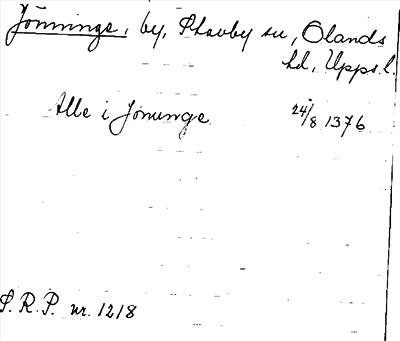 Jönninge, by, Skavby sn, Ölands
hd, Upps. l.
Alle i Jonunge 24/8 1376
S. R. P. nr. 1218